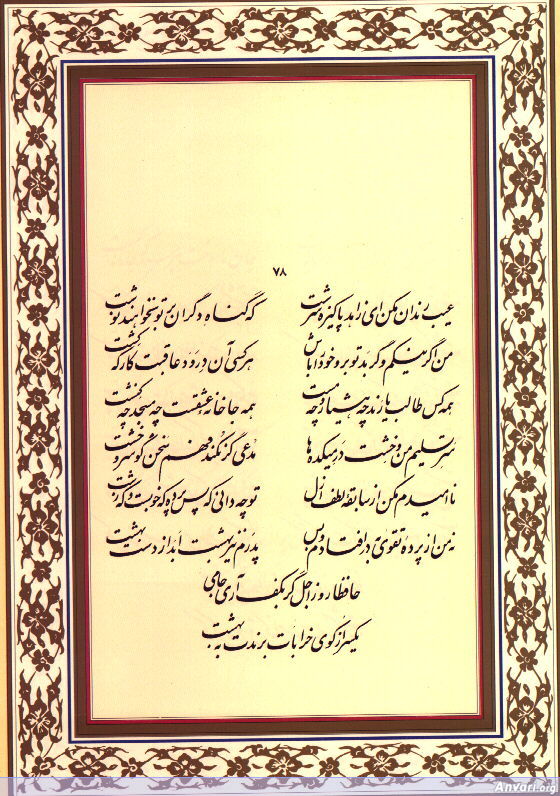 ۷۸
عیب رندان مکن ای زاهد پاکیزه سرشت که گناه دگران بر تو نخواهند نوشت
من اگر نیکم و گر بد تو برو خود را باش هر کسی آن درود عاقبت کار که کشت
همه کس طالب یارند چه هشیار و چه مست همه جا خانه عشقست چه مسجد چه کنشت
سر تسلیم من و خشت در میکده ها مدعی گر نکند فهم سخن گو سر و خشت
نا امیدم مکن از سابقه لطف ازل تو چه دانی که پس پرده که خوبست و که زشت
نه من از پرده تقوی بدر افتادم و بس پدرم نیز بهشت ابد از دست بهشت
حافظا روز اجل گر بکف آری جامی
یکسر از کوی خرابات برندت به بهشت
Anvari.org